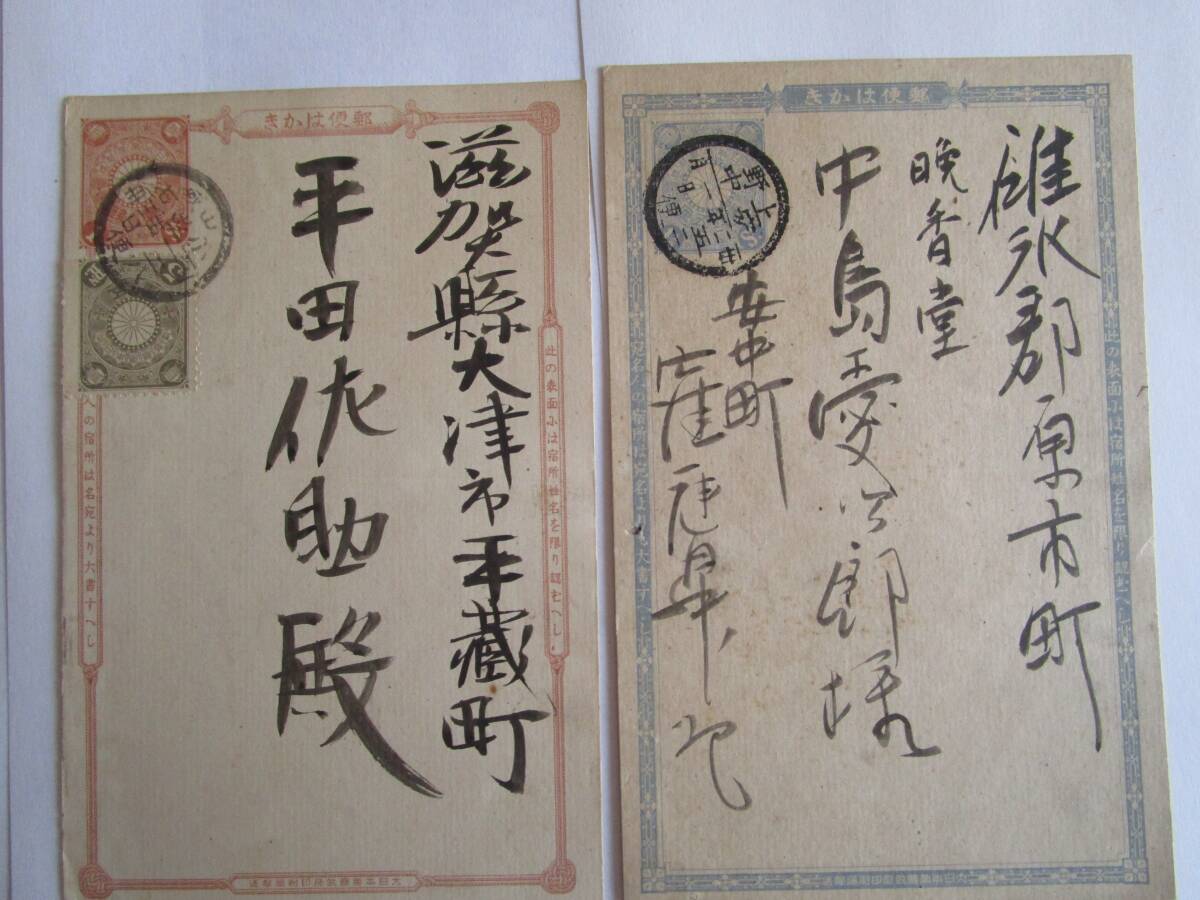 郵便はかき
滋賀縣大津市平藏町
平田佐助殿
此の表面には宿所姓名を限り認むへし
人の宿所は名宛より大書すへし
大日本帝國政府印刷局製造
郵便はかき
碓氷郡原市町
晩香堂
中島愛公郎様
安中町
上野
安中
此の表面には宿所姓名を限り認むへし
大日本帝國政府印刷局製造